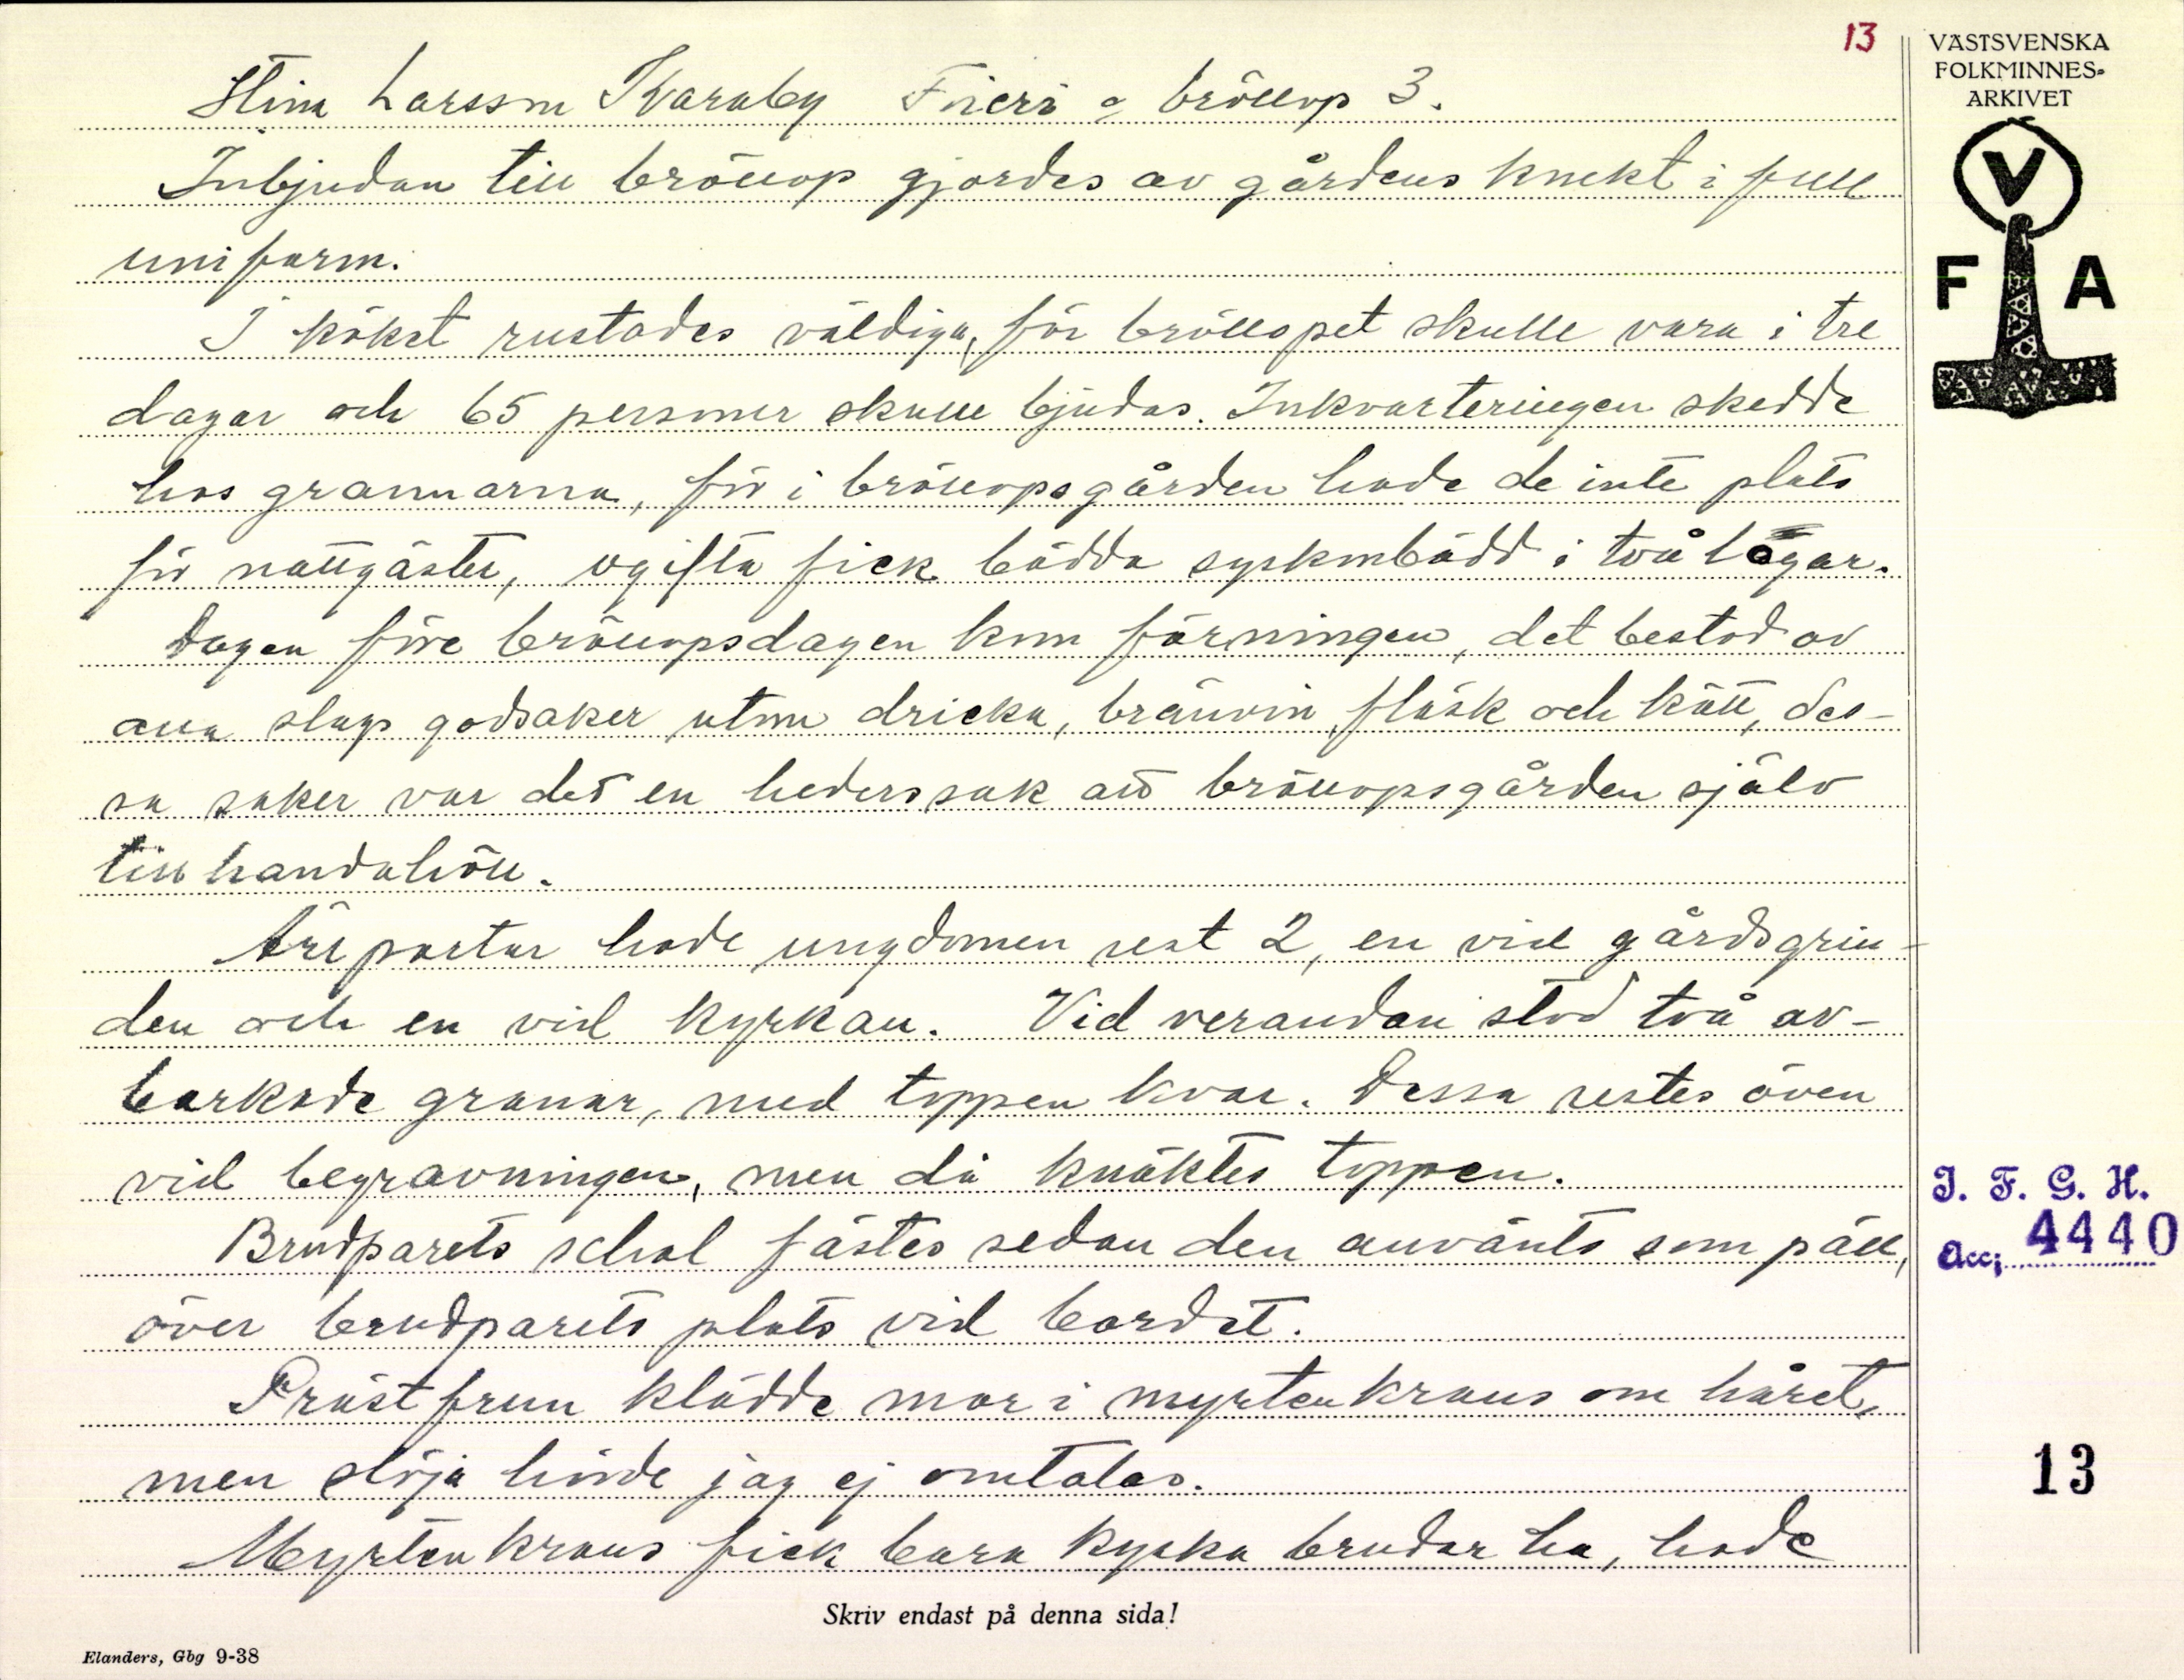 13
VÄSTSVENSKA
FOLKMINNES-
ARKIVET
V
F A
Stina Larsson Kvarnby Frieri o bröllop 3.
Inbjudan till bröllop gjordes av gårdens knekt i full
uniform.
I köket rustades väldiga, för bröllopet skulle vara i tre
dagar och 65 personer skulle bjudas. Inkvarteringen skedde
hos grannarna, för i bröllopsgården hade de inte plats
för nattgäster, ogifta fick bädda syskonbädd i två lågar.
Dagen före bröllopsdagen kom förningen, det bestod av
alla slags godsaker utom dricka, brännvin, fläsk och kött, des-
sa saker var det en hederssak att bröllopsgården själv
tillhandahöll.
Äreportar hade ungdomen rest 2, en vid gårdsgrin-
den och en vid kyrkan. Vid verandan stod två av-
barkade granar, med toppen kvar. Dessa restes även
vid begravningen, men då knäktes toppen.
Brudparets schal fästes sedan den använts som päll,
över brudparets plats vid bordet.
Prästfrun klädde mor i myrtenkrans om håret,
men slöja hörde jag ej omtalas.
Myrtenkrans fick bara kyska brudar ha, hade
J. F. G. H.
Acc; 4440
13
Skriv endast på denna sida!
Elanders, Gbg 9-38